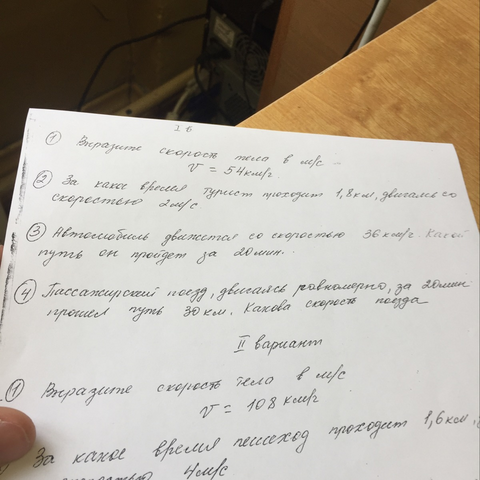 1 в
① Выразите скорость тела в м/с
v = 54 км/г
② За какое время турист проходит 1,8 км, двигаясь со
скоростью 2 м/с
③ Автомобиль движется со скоростью 36 км/г. Какой
путь он пройдет за 20 мин.
④ Пассажирский поезд, двигаясь равномерно, за 20 мин
прошел путь 30 км. Какова скорость поезда
II вариант
① Выразите скорость тела в м/с
v = 108 км/г
За какое время пешеход проходит 1,6 км,
скоростью 4 м/с